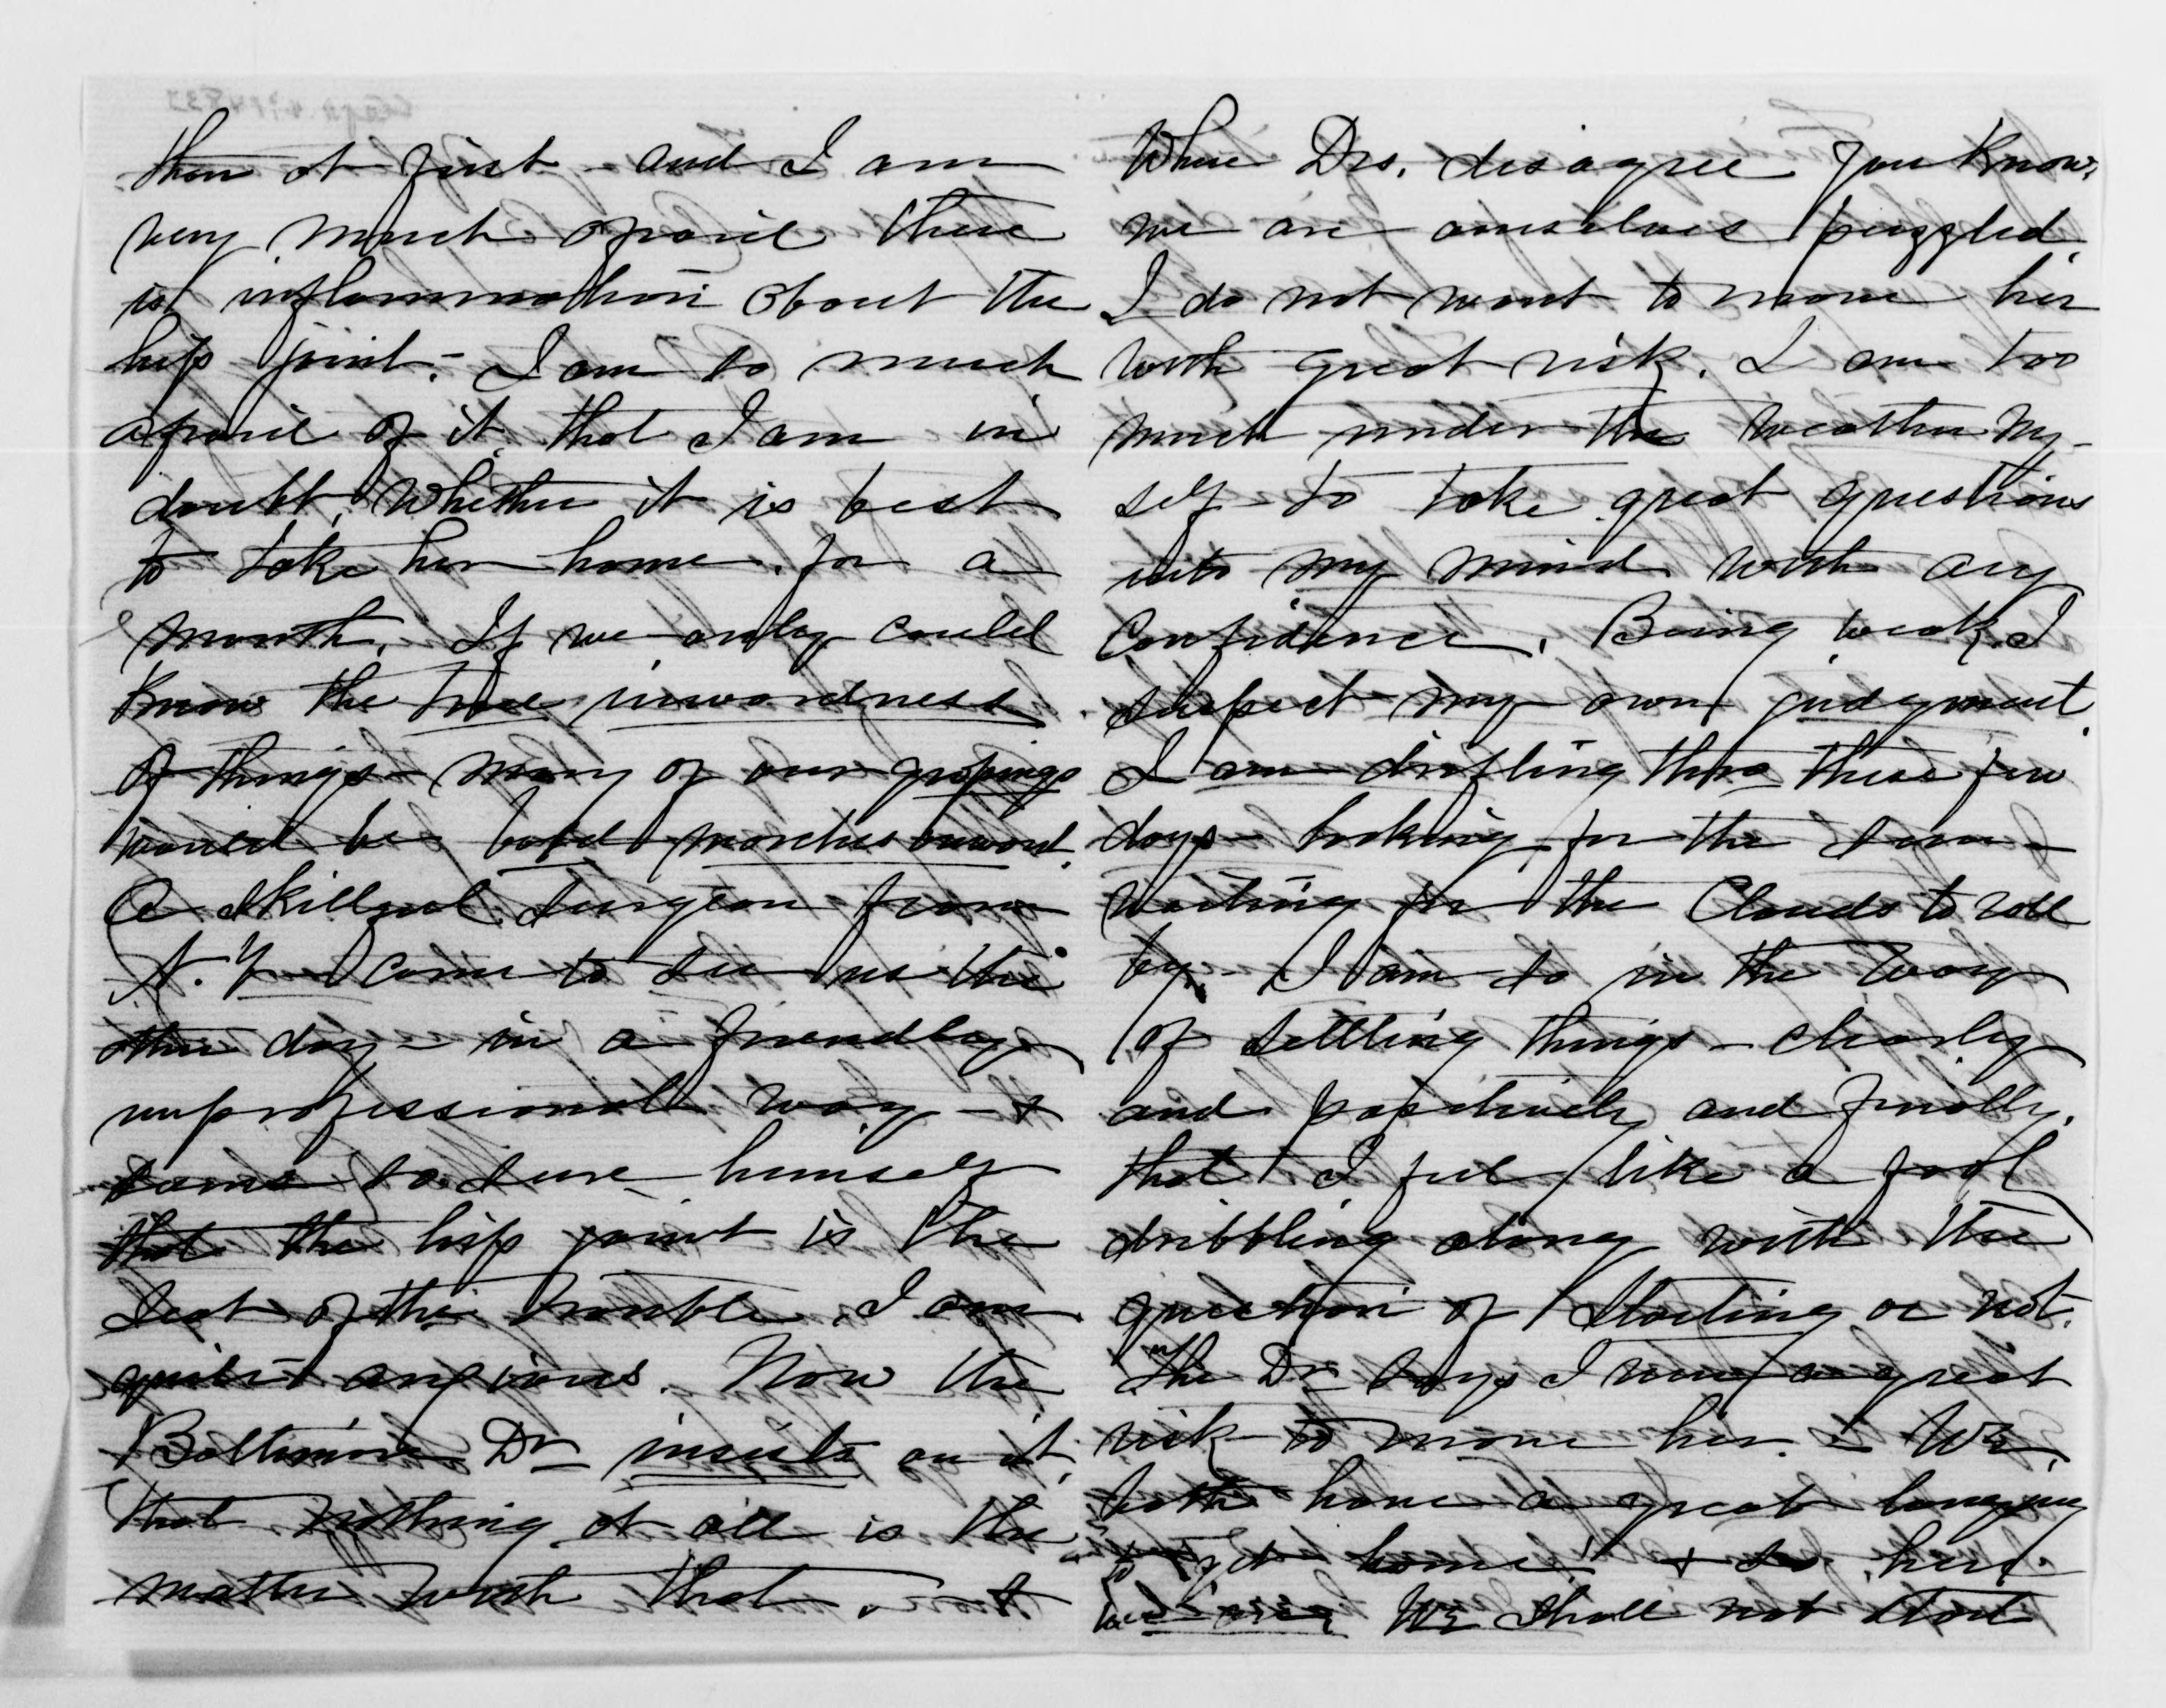 than at first - and I am
very much afraid there
is inflammation about the
hip joint. - I am so much
afraid of it, that I am in
doubt, whether it is best
to take her home. for a
month. If we only could
know the true inwardness
of things - many of our gropings
would be bold marches onward.
A skillful surgeon from
N. Y. came to see us the
other day - in a friendly
unprofessional way - &
to sure himself
that the hip joint is the
seat of the trouble. I am
quite anxious. Now the
Baltimore Dr insists on it,
that nothing at all is the
matter with that. - &
Where Drs. disagree you know,
we are ourselves puzzled.
I do not want to move her
with great risk. I am too
much under the weather my-
self to take great questions
into my mind with any
Confidence. Being weak, I
suspect my own judgment.
I am drifting thro these few
days - looking for the dawn -
waiting for the Clouds to roll
by. - I am so in the way
of settling things - clearly
and positively and finally.
that I feel like a fool
dribbling along with the
question of starting or not.
The Dr says I run a great
risk to move her. - We
both have a great longing
to get home! & so here
we We shall not start